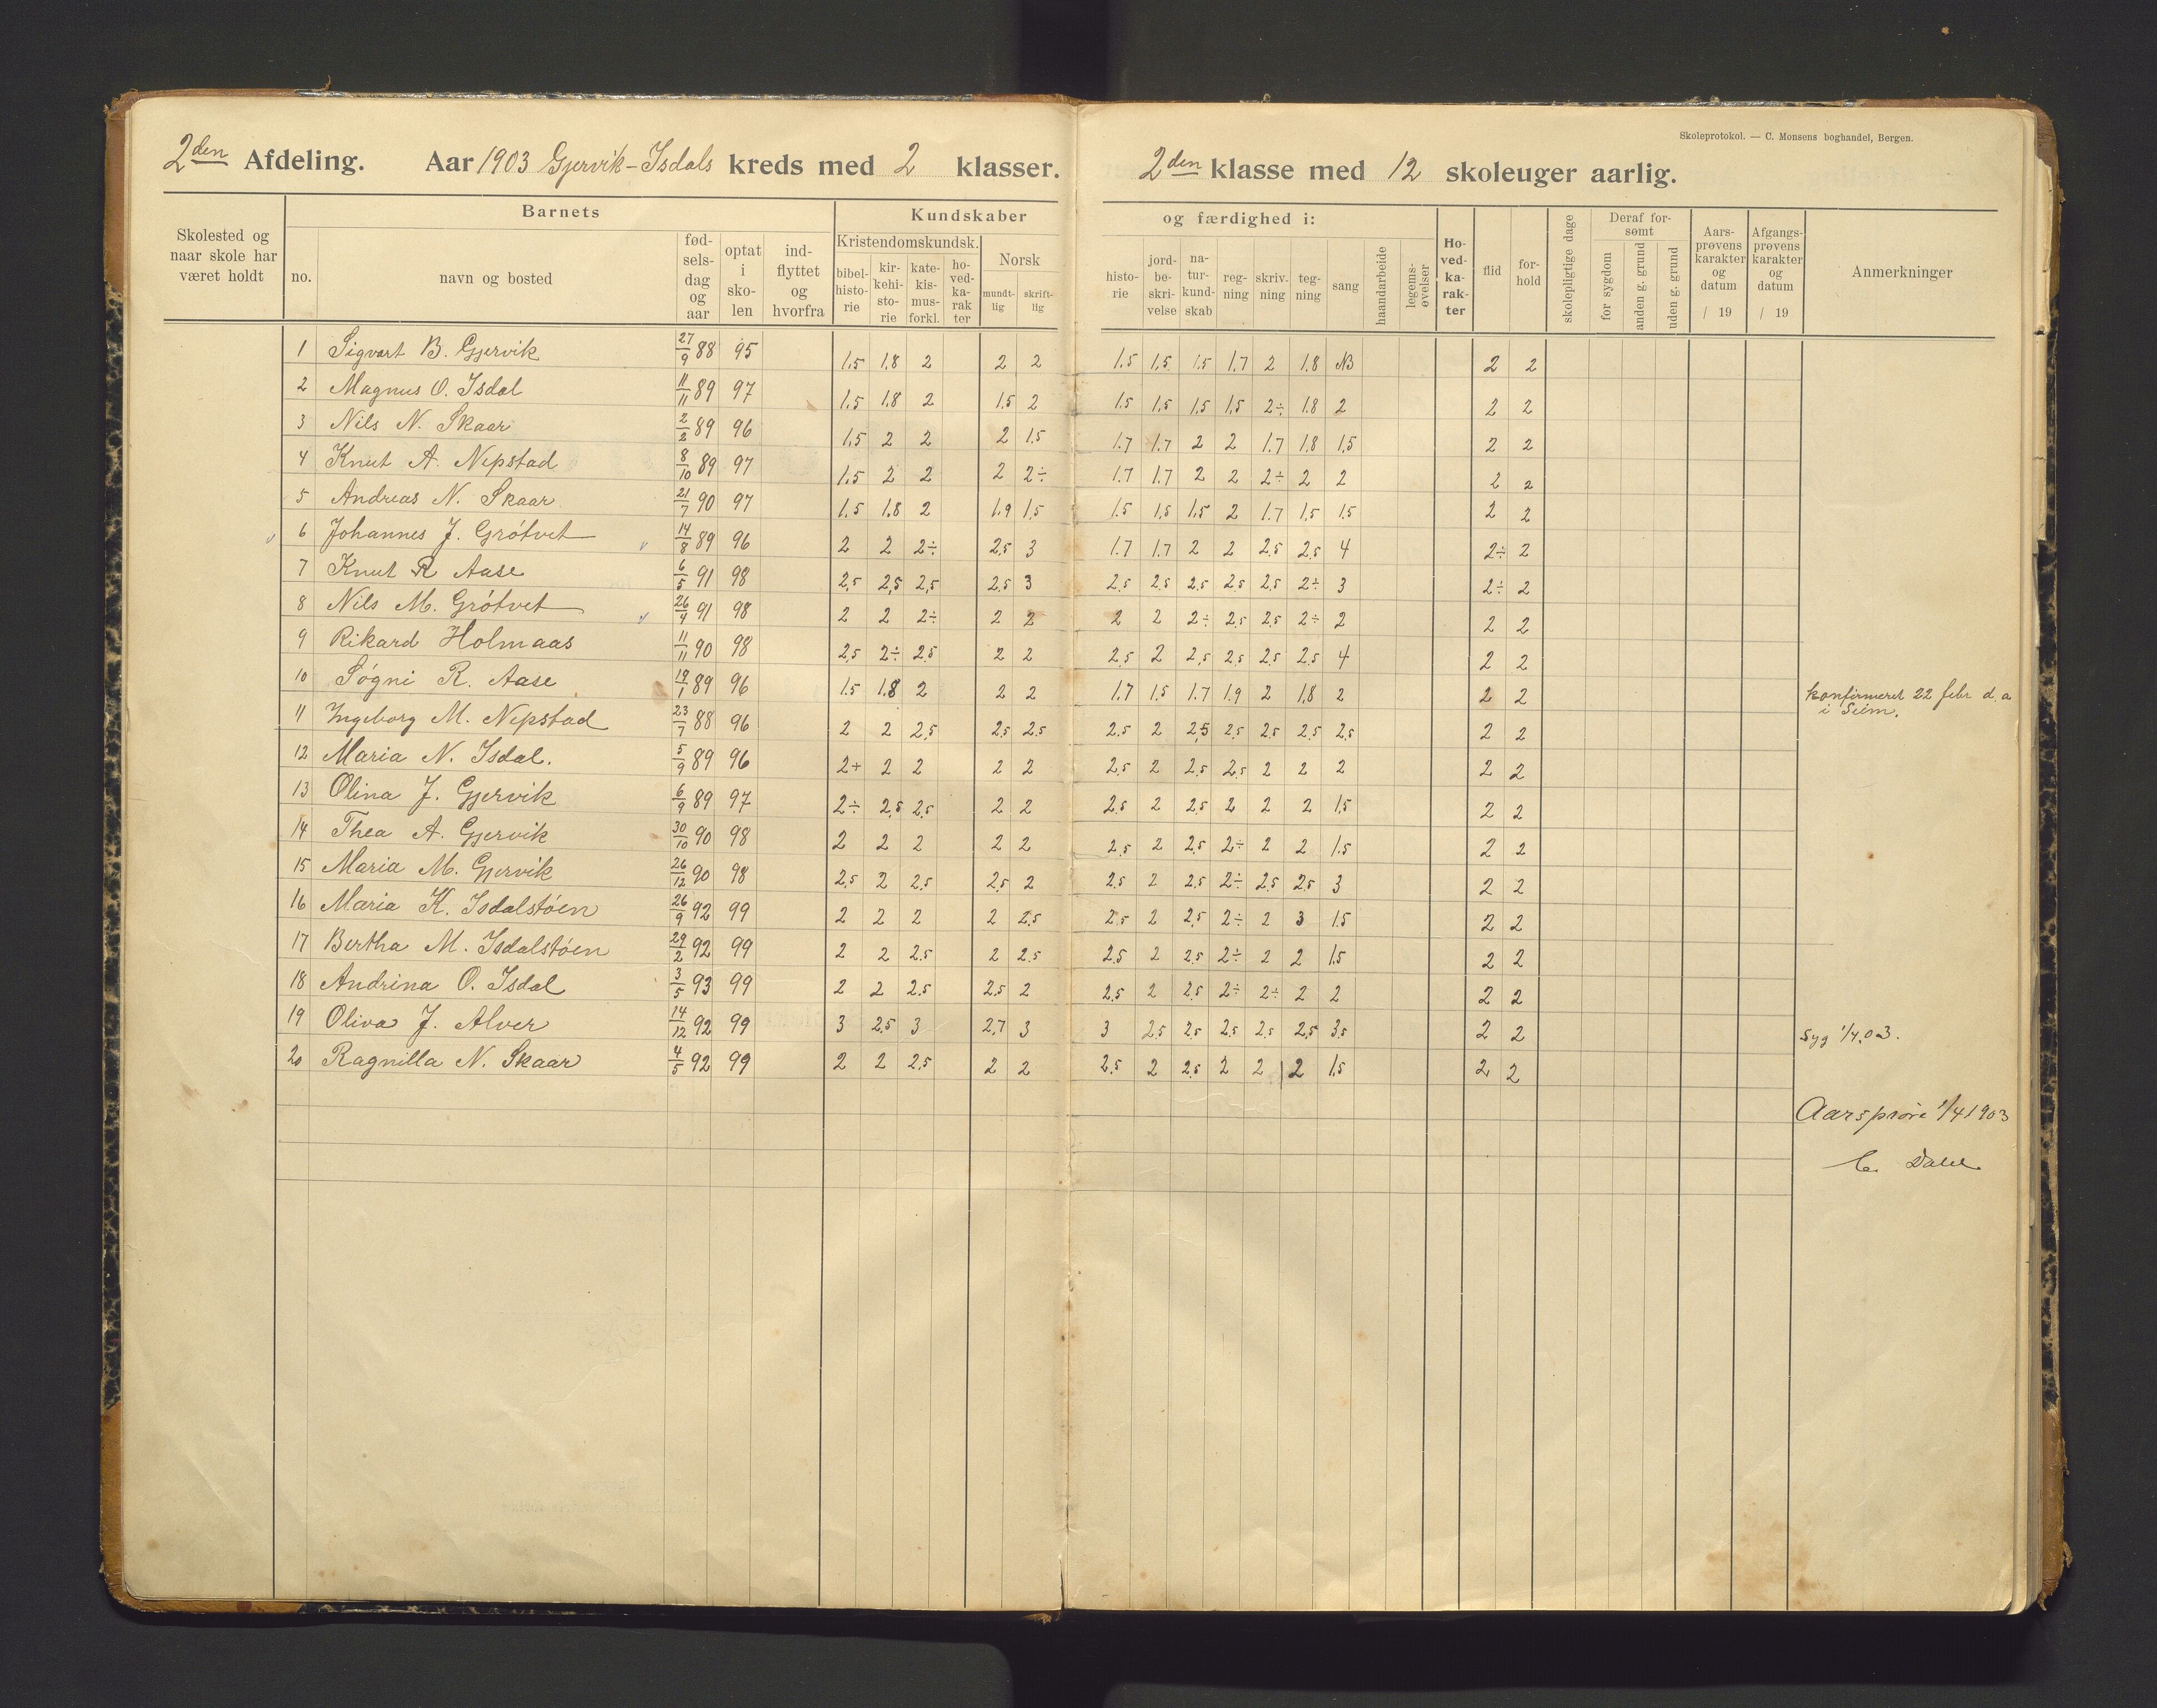 Skoleprotokol. — C. Monsens boghandel, Bergen.
2den Afdeling. Aar 1903 Gjervik-Isdals kreds med 2 klasser. 2den klasse med 12 skoleuger aarlig.
Barnets Kundskaber og færdighed i:
Skolested og naar skole har været holdt
no. navn og bosted fødselsdag og aar optat i skolen indflyttet og hvorfra
Kristendomskundsk. bibelhistorie kirkehistorie katekismusforkl. hovedkarakter
Norsk mundtlig skriftlig
historie jordbeskrivelse naturkundskab regning skrivning tegning sang haandarbeide legemsøvelser
Hovedkarakter flid forhold skolepligtige dage
Deraf forsømt for sygdom anden g. grund uden g. grund
Aarsprøvens karakter og datum / 19
Afgangsprøvens karakter og datum / 19
Anmerkninger
1 Sigvart B. Gjervik 27/9 88 95 1.5 1.8 2 2 2 1.5 1.5 1.5 1.7 2 1.8 NB 2 2
2 Magnus O. Isdal 11/11 89 97 1.5 1.8 2 1.5 2 1.5 1.5 1.5 1.5 2÷ 1.8 2 2 2
3 Nils N. Skaar 2/2 89 96 1.5 2 2 2 1.5 1.7 1.7 2 2 1.7 1.8 1.5 2 2
4 Knut A. Nepstad 8/10 89 97 1.5 2 2 2 2÷ 1.7 1.7 2 2 2÷ 2 2 2 2
5 Andreas N. Skaar 21/7 90 97 1.5 1.8 2 1.9 1.5 1.5 1.5 1.5 2 1.7 1.5 1.5 2 2
6 Johannes J. Grótvet 14/8 89 96 2 2 2÷ 2.5 3 1.7 1.7 2 2 2.5 2.5 4 2÷ 2
7 Knut R Aase 6/5 91 98 2.5 2.5 2.5 2.5 3 2.5 2.5 2.5 2.5 2.5 2÷ 3 2÷ 2
8 Nils M. Grótvet 26/4 91 98 2 2 2÷ 2 2 2 2 2÷ 2.5 2.5 2÷ 2 2 2
9 Rikard Holmaas 11/11 90 98 2.5 2÷ 2.5 2 2 2.5 2 2.5 2.5 2.5 2.5 4 2 2
10 Sógni R. Aase 19/1 89 96 1.5 1.8 2 2 2 1.7 1.5 1.7 1.9 2 1.8 2 2 2 konfirmeret 22 febr d. a
i Seim.
11 Ingeborg M. Nepstad 23/7 88 96 2 2 2.5 2.5 2.5 2.5 2 2.5 2.5 2.5 2.5 2.5 2 2
12 Maria N. Isdal. 5/9 89 96 2+ 2 2 2 2 2.5 2 2.5 2.5 2 2 2 2 2
13 Olina J. Gjervik 6/9 89 97 2÷ 2.5 2.5 2 2 2.5 2 2.5 2 2 2 1.5 2 2
14 Thea A. Gjervik 30/10 90 98 2 2 2 2 2 2.5 2 2.5 2÷ 2 2 1.5 2 2
15 Maria M. Gjervik 26/12 90 98 2.5 2 2.5 2.5 2 2.5 2 2.5 2÷ 2.5 2.5 3 2 2
16 Maria K. Isdalstóen 26/9 92 99 2 2 2 2 2.5 2.5 2 2.5 2÷ 2 3 1.5 2 2
17 Bertha M. Isdalstóen 29/2 92 99 2 2 2.5 2 2.5 2.5 2 2.5 2÷ 2 2 1.5 2 2
18 Andrina O. Isdal 3/5 93 99 2 2 2.5 2.5 2 2.5 2 2.5 2÷ 2÷ 2 2 2 2
19 Oliva J. Alver 14/12 92 99 3 2.5 3 2.7 3 3 2.5 2.5 2.5 2.5 2.5 3.5 2 2 Syg 1/4.03.
20 Ragnilla N. Skaar 4/5 92 99 2 2 2.5 2 2 2.5 2 2.5 2 2 2 1.5 2 2
Aarsprøve 1/4 1903
Dahl